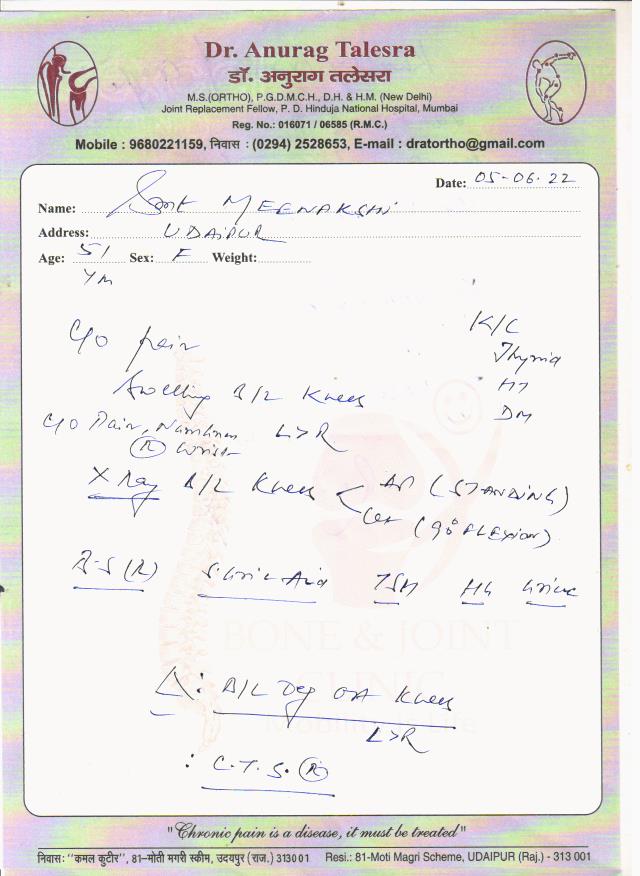 Dr. Anurag Talesra
डॉ. अनुराग तलेसरा
M.S.(ORTHO), P.G.D.M.C.H., D.H. & H.M. (New Delhi)
Joint Replacement Fellow, P. D. Hinduja National Hospital, Mumbai
Reg. No.: 016071 / 06585 (R.M.C.)
Mobile : 9680221159, निवास : (0294) 2528653, E-mail : dratortho@gmail.com
Date: 05-06-22
Name: Smt MEENAKSHI
Address: UDAIPUR
Age: 51 Sex: F Weight:
K/C
C/O pain
Thyroid
Swelling B/L Knees
DM
C/O Pain, Numbness L>R
(R) Wrist
X Ray B/L Knees AP (STANDING)
Lat (90° FLEXION)
S. Uric Acid TSH Hb Urine
BONE & JOINT
CLINIC
Δ: B/L Deg OA Knees
L>R
: C.T.S. (R)
"Chronic pain is a disease, it must be treated"
निवास: "कमल कुटीर", 81-मोती मगरी स्कीम, उदयपुर (राज.) 313001 Resi.: 81-Moti Magri Scheme, UDAIPUR (Raj.) - 313 001